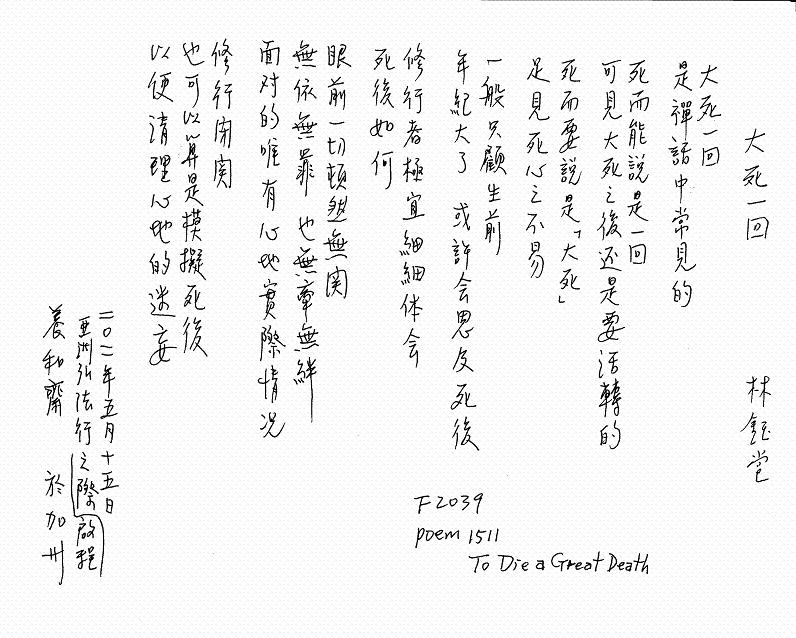 大死一回　林鈺堂
大死一回
是禪話中常見的
死而能說是一回
可見大死之後还是要活轉的
死而要說是「大死」
足見死心之不易
一般只顧生前
年紀大了 或許会思及死後
修行者極宜細細体会
死後如何
眼前一切頓然無関
無依無靠 也無牽無絆
面对的唯有心地實際情况
修行閉関
也可以算是模擬死後
以便清理心地的迷妄
二〇一一年五月十五日
亚洲弘法行之際啟程
養和齋 於加州
F2039
poem 1511
To Die a Great Death